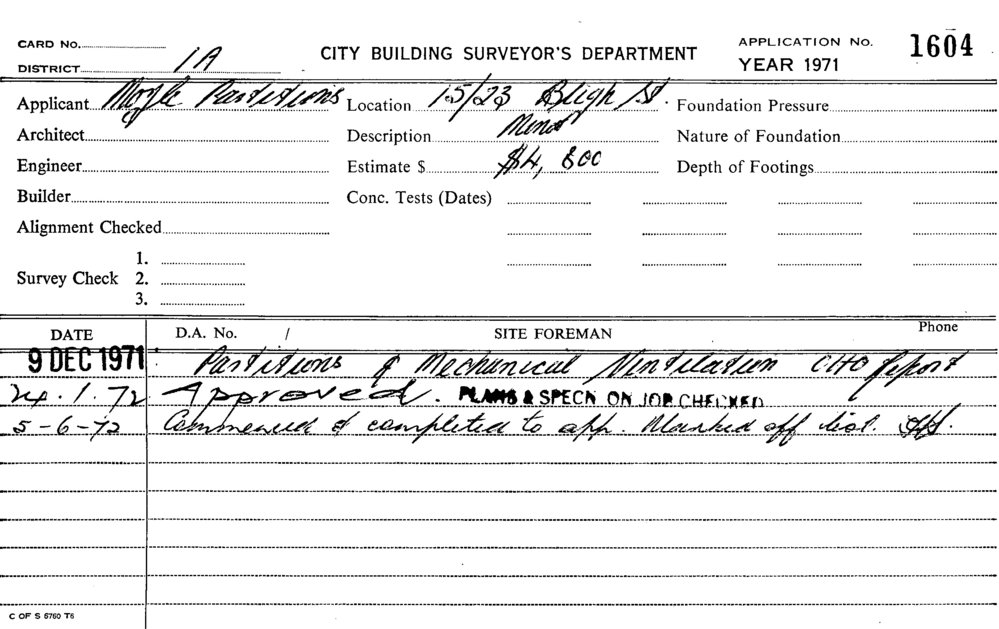 CARD No.
DISTRICT 1A
CITY BUILDING SURVEYOR'S DEPARTMENT
APPLICATION No. 1604
YEAR 1971
Applicant Partitions
Location 15/23 Bligh St.
Foundation Pressure
Architect
Description Minor
Nature of Foundation
Engineer
Estimate $ $4,800
Depth of Footings
Builder
Conc. Tests (Dates)
Alignment Checked
Survey Check
1.
2.
3.
DATE D.A. No. / SITE FOREMAN Phone
9 DEC 1971 Partitions & Mechanical Ventilation CHO Report
24.1.72 Approved. PLANS & SPECN ON JOB CHECKED
5-6-72 Commenced & completed to app. Marked off list.
C OF S 6760 T6